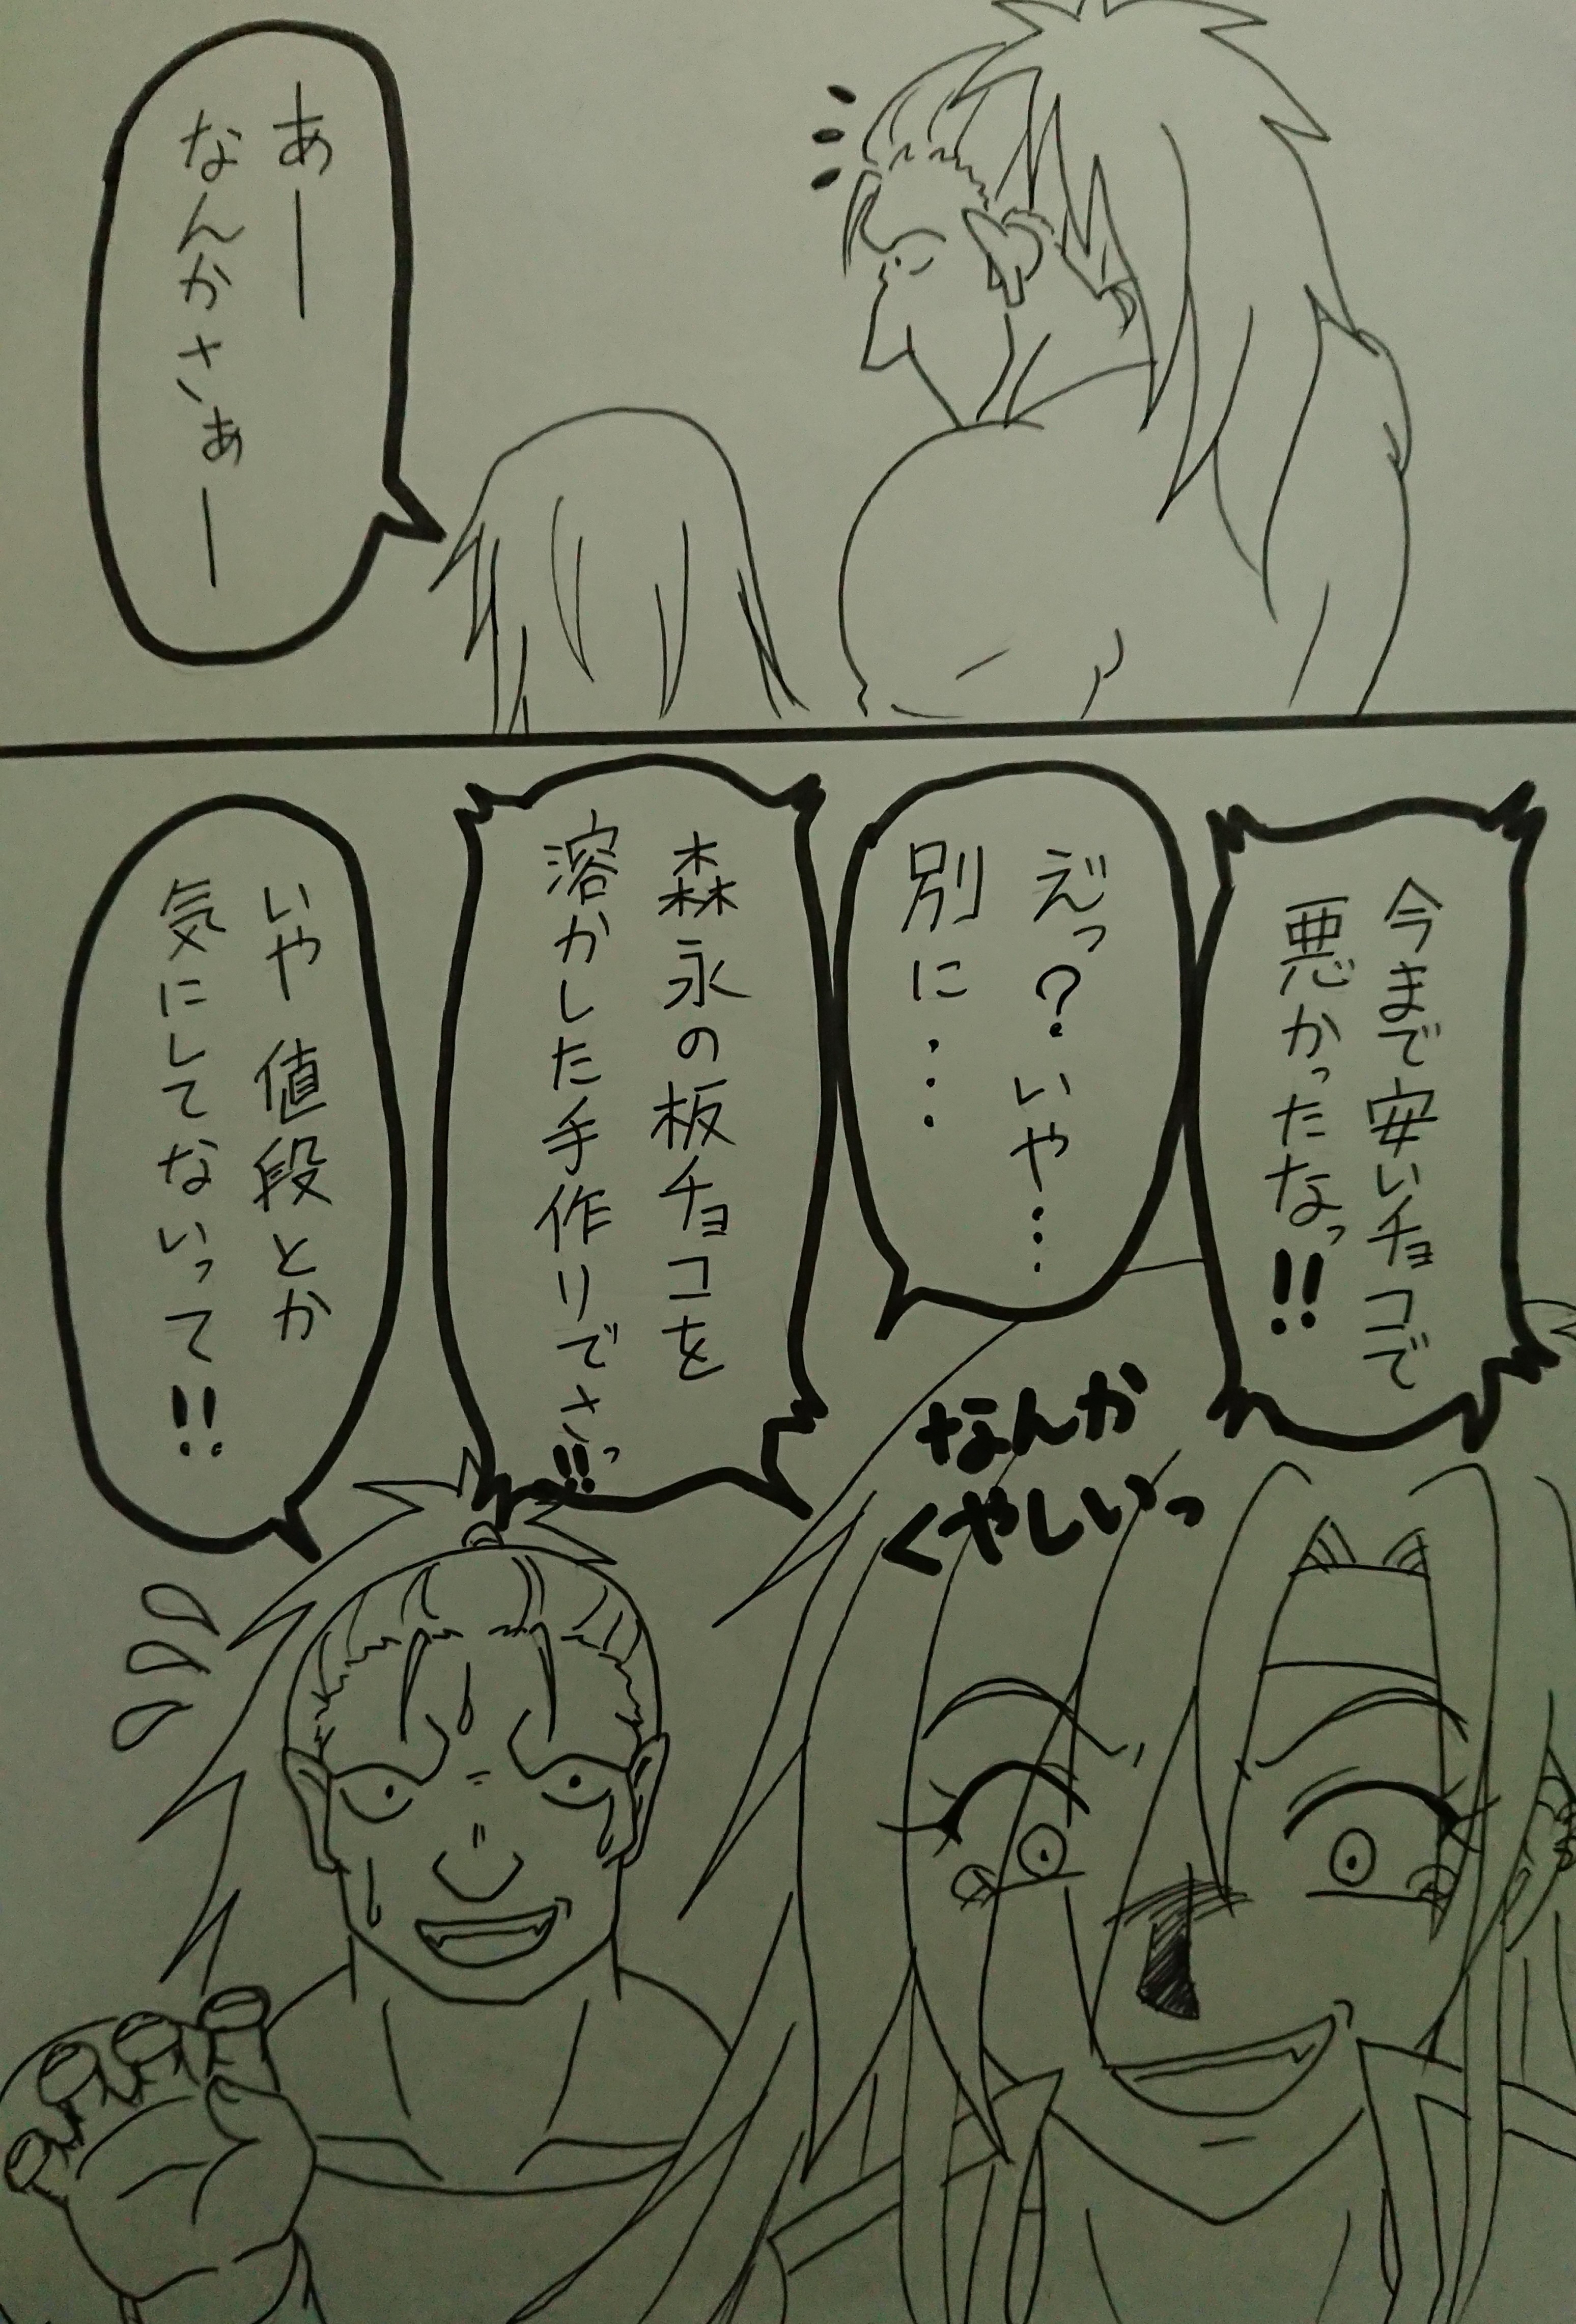 あー
なんかさぁー
今まで安いチョコで
悪かったなっ!!
えっ?いや…
別に…
なんか
くやしいっ
森永の板チョコを
溶かした手作りでさっ!!
いや 値段とか
気にしてないって!!